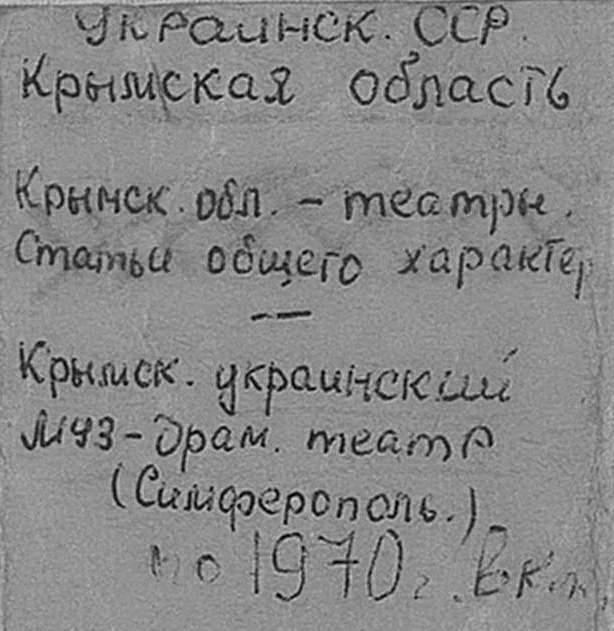 Украинск. ССР.
Крымская область
Крымск. обл. - театры.
Статьи общего характер
Крымск. украинский
муз-драм. театр
(Симферополь.)
по 1970 г. Вкл.